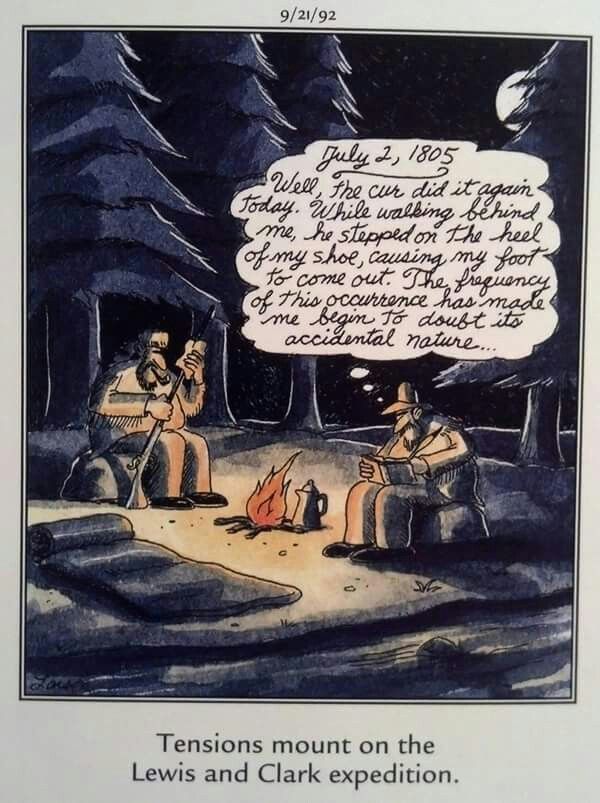 9/21/92
July 2, 1805
Well, the cur did it again
today. While walking behind
me, he stepped on the heel
of my shoe, causing my foot
to come out. The frequency
of this occurrence has made
me begin to doubt its
accidental nature...
Larson
Tensions mount on the
Lewis and Clark expedition.